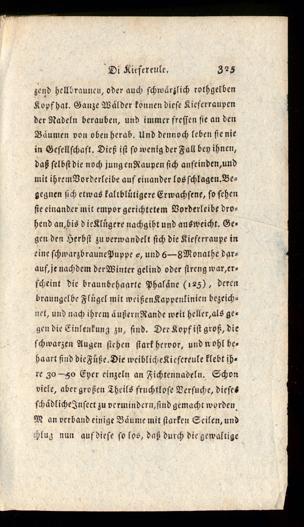 Di Kiefereule. 325
zend hellbraunen, oder auch schwärzlich rothgelben
Kopf hat. Ganze Wälder können diese Kieferraupen
der Nadeln berauben, und immer fressen sie an den
Bäumen von oben herab. Und dennoch leben sie nie
in Gesellschaft. Dieß ist so wenig der Fall bey ihnen,
daß selbst die noch jungen Raupen sich anfeinden, und
mit ihrem Vorderleibe auf einander los schlagen. Be-
gegnen sich etwas kaltblütigere Erwachsene, so sehen
sie einander mit empor gerichtetem Vorderleibe dro-
hend an, bis die Klügere nachgibt und ausweicht. Ge-
gen den Herbst zu verwandelt sich die Kieferraupe in
eine schwarzbraune Puppe e, und 6—8 Monathe dar-
auf, je nachdem der Winter gelind oder streng war, er-
scheint die braunbehaarte Phaläne (125), deren
braungelbe Flügel mit weißen Kappenlinien bezeich-
net, und nach ihrem äußern Rande weit heller, als ge-
gen die Einlenkung zu, sind. Der Kopf ist groß, die
schwarzen Augen stehen stark hervor, und wohl be-
haart sind die Füße. Die weibliche Kiefereule klebt ih-
re 30—50 Eyer einzeln an Fichtennadeln. Schon
viele, aber großen Theils fruchtlose Versuche, dieses
schädliche Insect zu vermindern, sind gemacht worden.
Man verband einige Bäume mit starken Seilen, und
schlug nun auf diese so los, daß durch die gewaltige